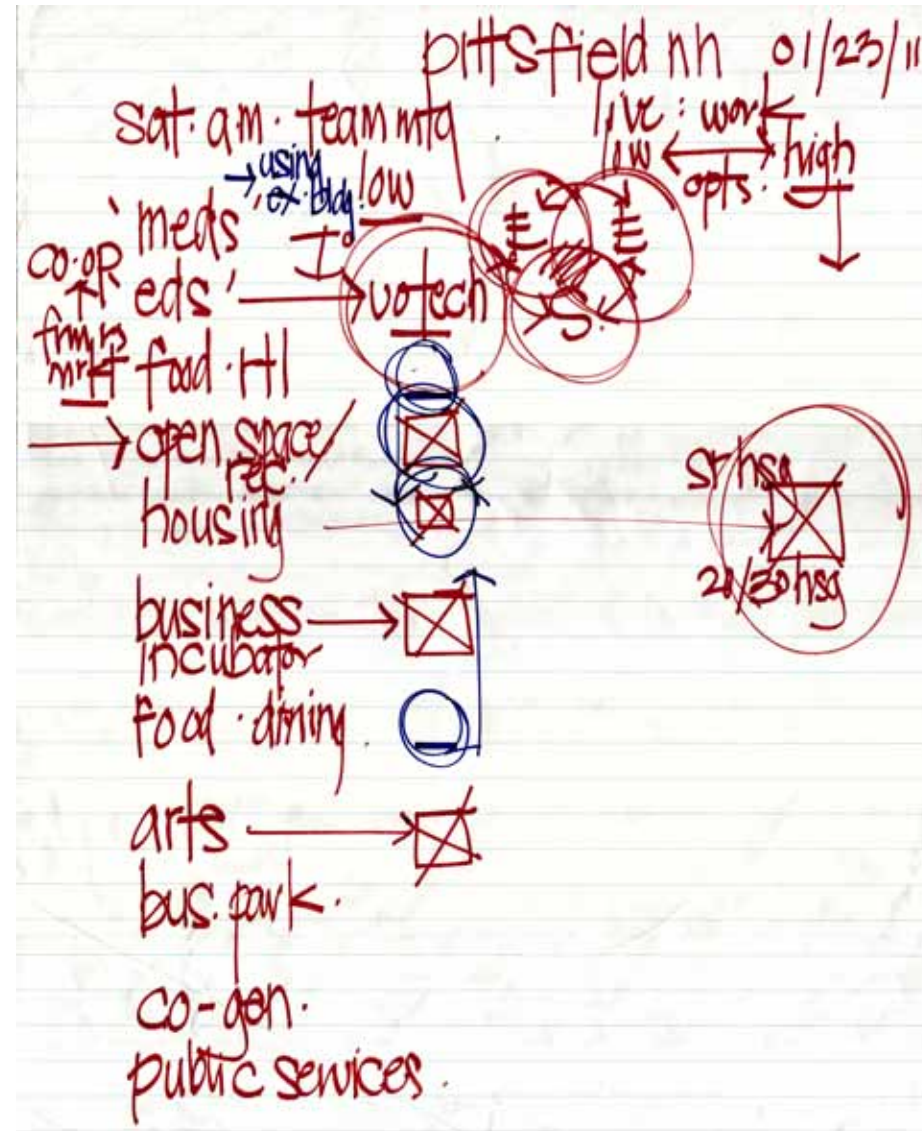 pittsfield nh 01/23/11
sat. am. team mtg
live: work
low opts. high
→ using
ex. bldg.
low
'meds
E E
S.
co-op
eds' → votech
frmrs
mrkt
food. Htl
→ open space/
rec.
housing
sr hsg
20/30 hsg
business
incubator
food. dining
arts
bus. park.
co-gen.
public services.